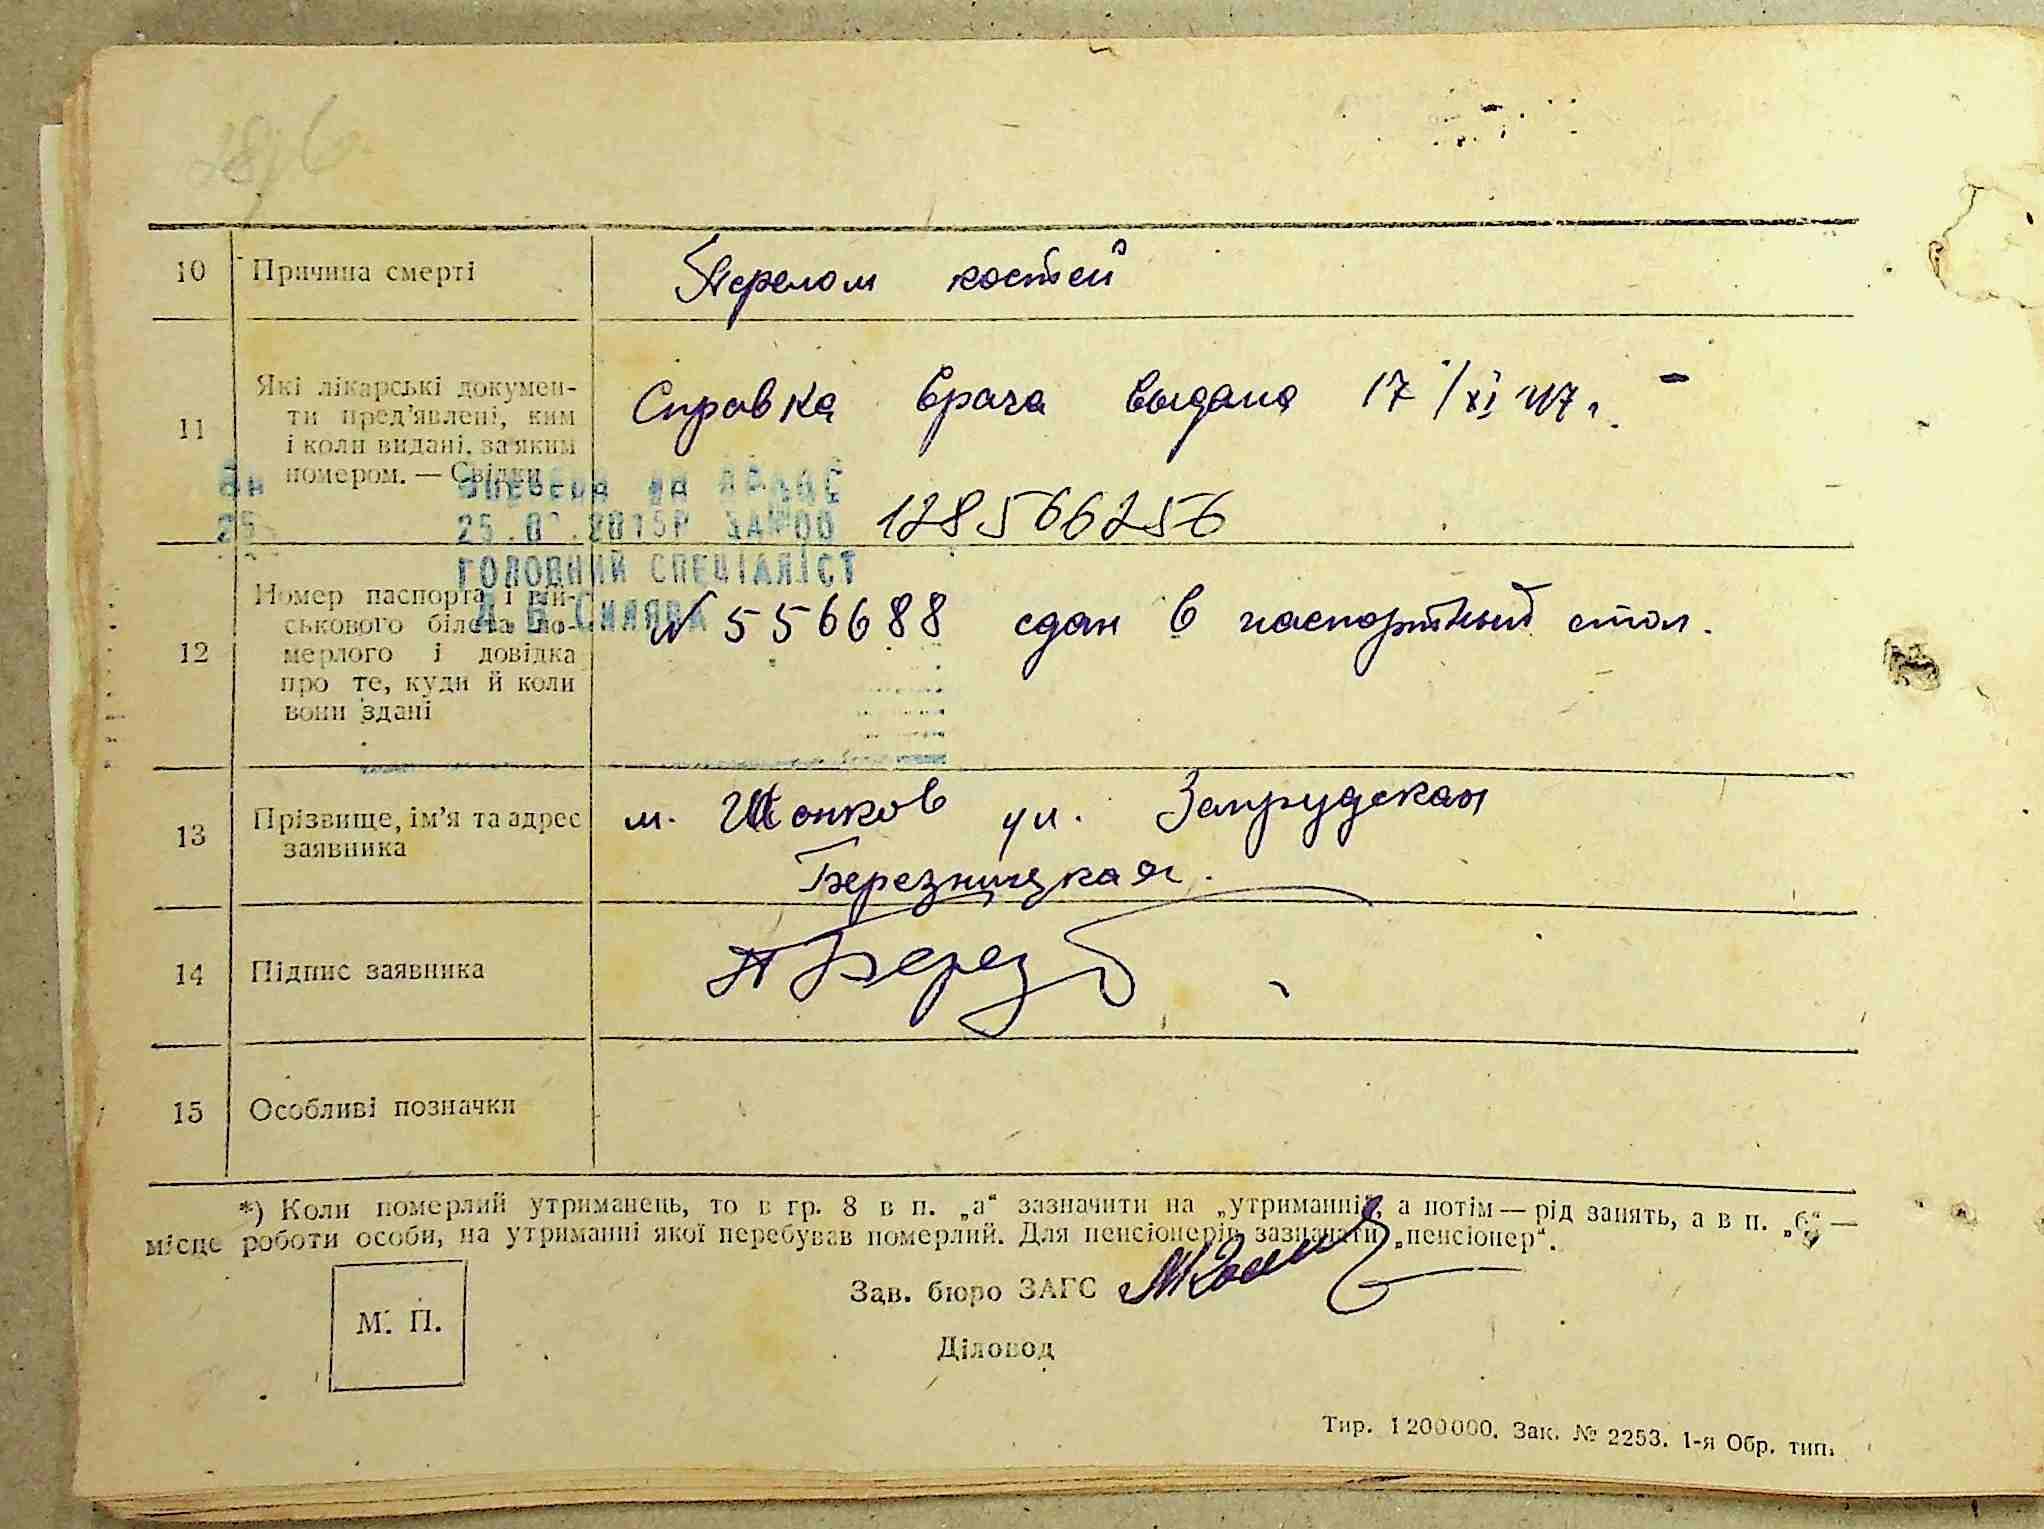 10 Причина смерті Перелом костей
11 Які лікарські документи
ти пред'явлені, ким
і коли видані, за яким
номером. — Свідки
Справка врача выдана 17/XI 47 г.
25.0 .2015Р ЗАМ
128566256
ГОЛОВНИЙ СПЕЦІАЛІСТ
12 Номер паспорта і вій-
ськового білета по-
мерлого і довідка
про те, куди й коли
вони здані
№ 556688 сдан в паспортный стол.
13 Прізвище, ім'я та адрес
заявника
м. ул. Запрудская
Березницкая.
14 Підпис заявника
15 Особливі позначки
*) Коли померлий утриманець, то в гр. 8 в п. „а“ зазначити на „утриманні“, а потім — рід занять, а в п. „б“ —
місце роботи особи, на утриманні якої перебував померлий. Для пенсіонерів зазначати „пенсіонер“.
Зав. бюро ЗАГС
М. П.
Діловод
Тир. 1200000. Зак. № 2253. 1-я Обр. тип.